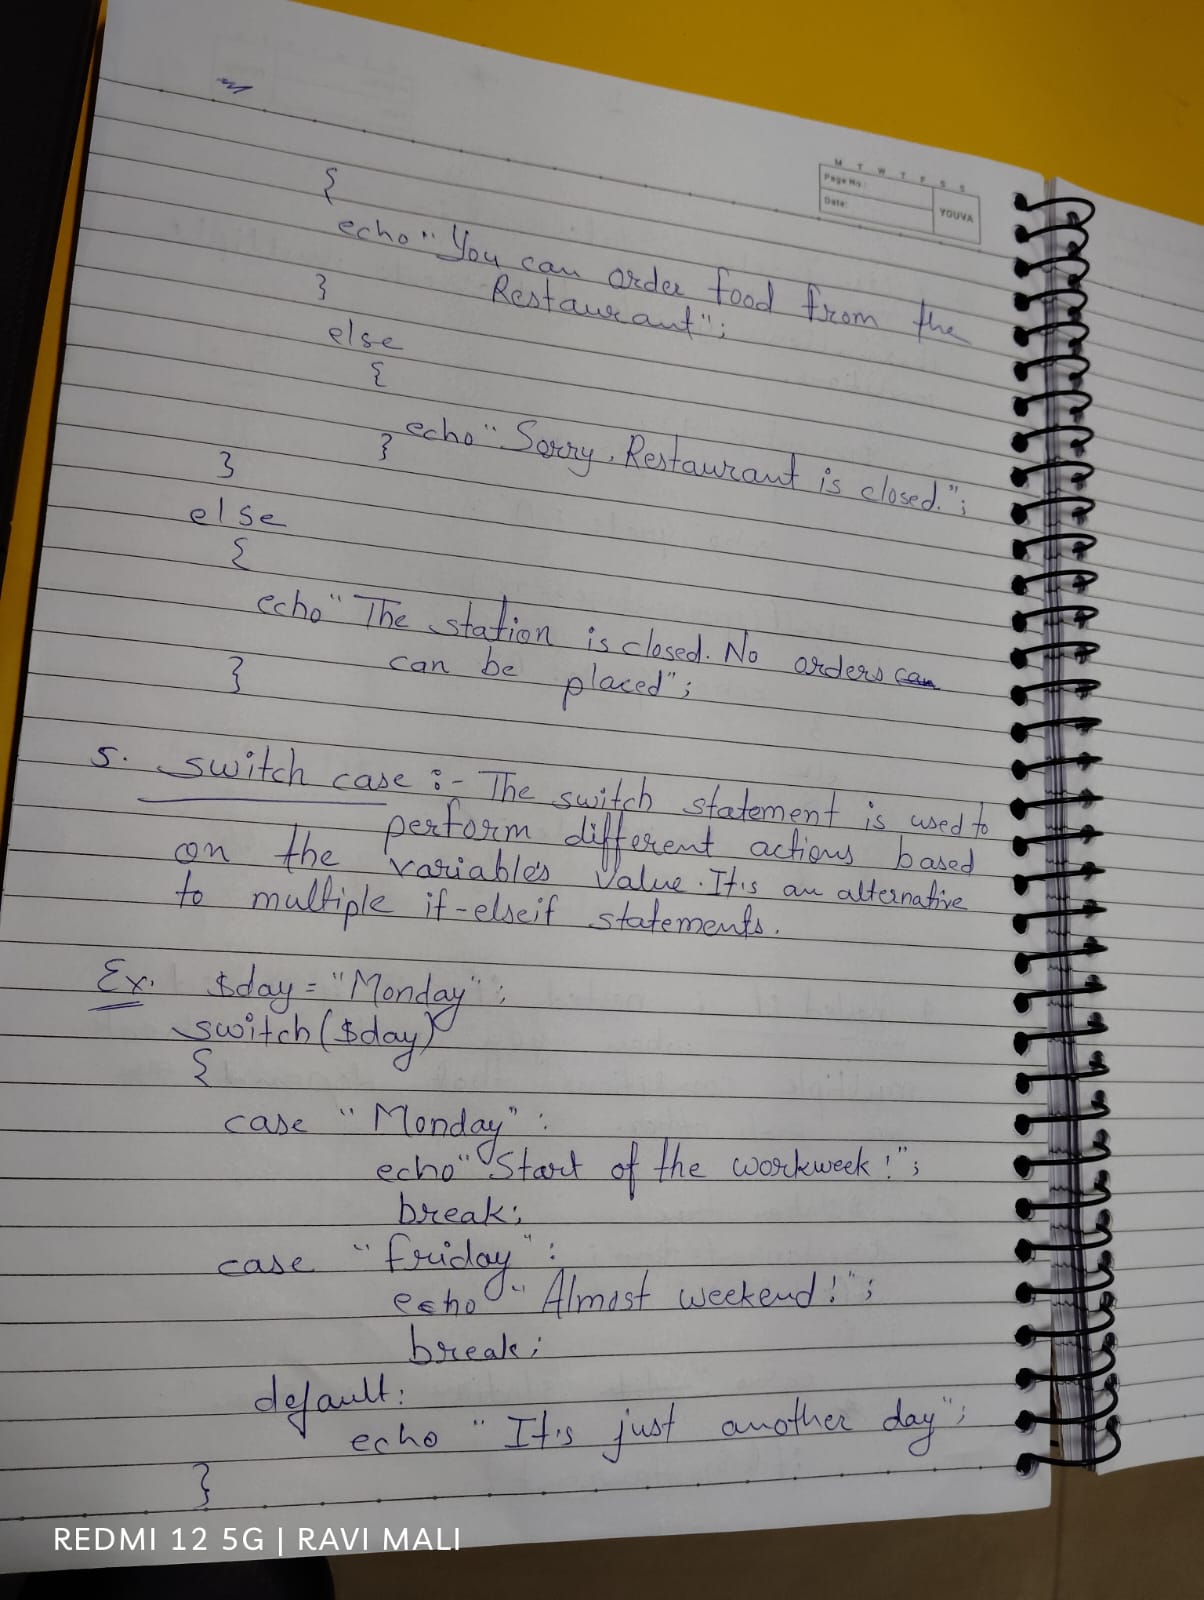 M T W T F S S
Page No.:
Date:
YOUVA
{
echo "You can order food from the
Restaurant";
}
else
{
echo "Sorry, Restaurant is closed.";
}
}
else
{
echo "The station is closed. No orders can
can be placed";
}
5. switch case :- The switch statement is used to
perform different actions based
on the variable's value. It's an alternative
to multiple if-elseif statements.
Ex. $day = "Monday";
switch($day)
{
case "Monday":
echo "Start of the workweek!";
break;
case "friday":
echo "Almost weekend!";
break;
default:
echo "It's just another day";
}
REDMI 12 5G | RAVI MALI